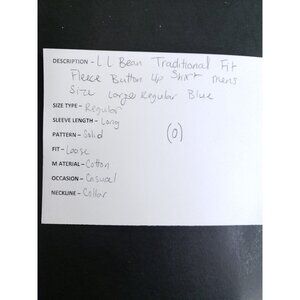 DESCRIPTION - LL Bean Traditional Fit
Fleece Button Up Shirt mens
Size Large Regular Blue
SIZE TYPE - Regular
SLEEVE LENGTH - Long
PATTERN - Solid
(0)
FIT - Loose
MATERIAL - Cotton
OCCASION - Casual
NECKLINE - Collar